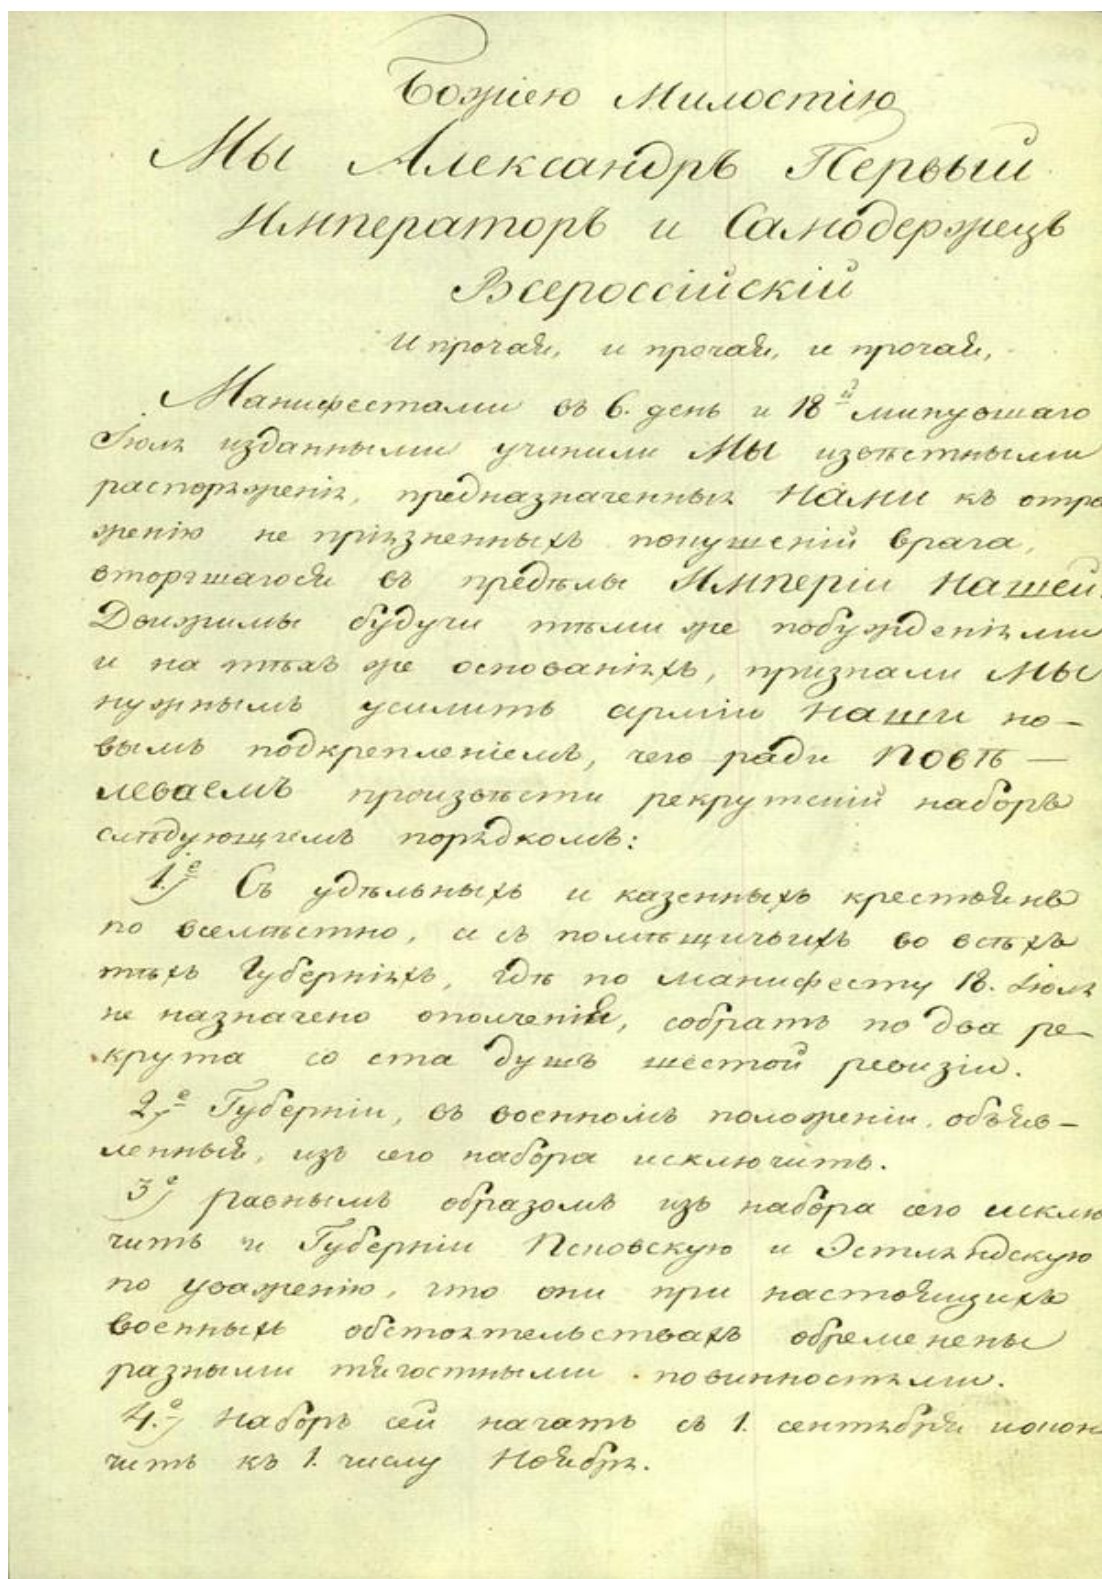 Божіею Милостію
Мы Александръ Первый
Императоръ и Самодержецъ
Всероссійскій
И прочая, и прочая, и прочая,
Манифестами въ 6. день и 18й минувшаго
Іюля изданными учинили Мы извѣстными
распоряженія, предназначенныя НАМИ къ отра
женію не пріязненныхъ покушеній врага,
вторгшагося въ предѣлы Имперіи Нашей.
Движимы будучи тѣми же побужденіями
и на тѣхъ же основаніяхъ, признали Мы
нужнымъ усилить арміи Наши но–
вымъ подкрепленіемъ, чего ради ПОВѢ —
леваемъ произвѣсти рекрутскій наборъ
слѣдующимъ порядкомъ:
1.е) Съ удѣльныхъ и казенныхъ крестьянъ
по всемѣстно, а съ помѣщичьихъ во всѣхъ
тѣхъ Губерніяхъ, гдѣ по манифесту 18. Іюля
не назначено ополченія, собрать по два ре–
крута со ста душъ шестой ревизіи.
2.е) Губерніи, въ военномъ положеніи, объяв–
ленныя, изъ сего набора исключить.
3е) равнымъ образомъ изъ набора сего исклю
чить и Губерніи Псковскую и Эстляндскую
по уваженію, что они при настоящихъ
военныхъ обстоятельствахъ обременены
разными тягостными повинностями.
4.е) Наборъ сей начать съ 1. сентября и окон
чить къ 1. числу Ноября.